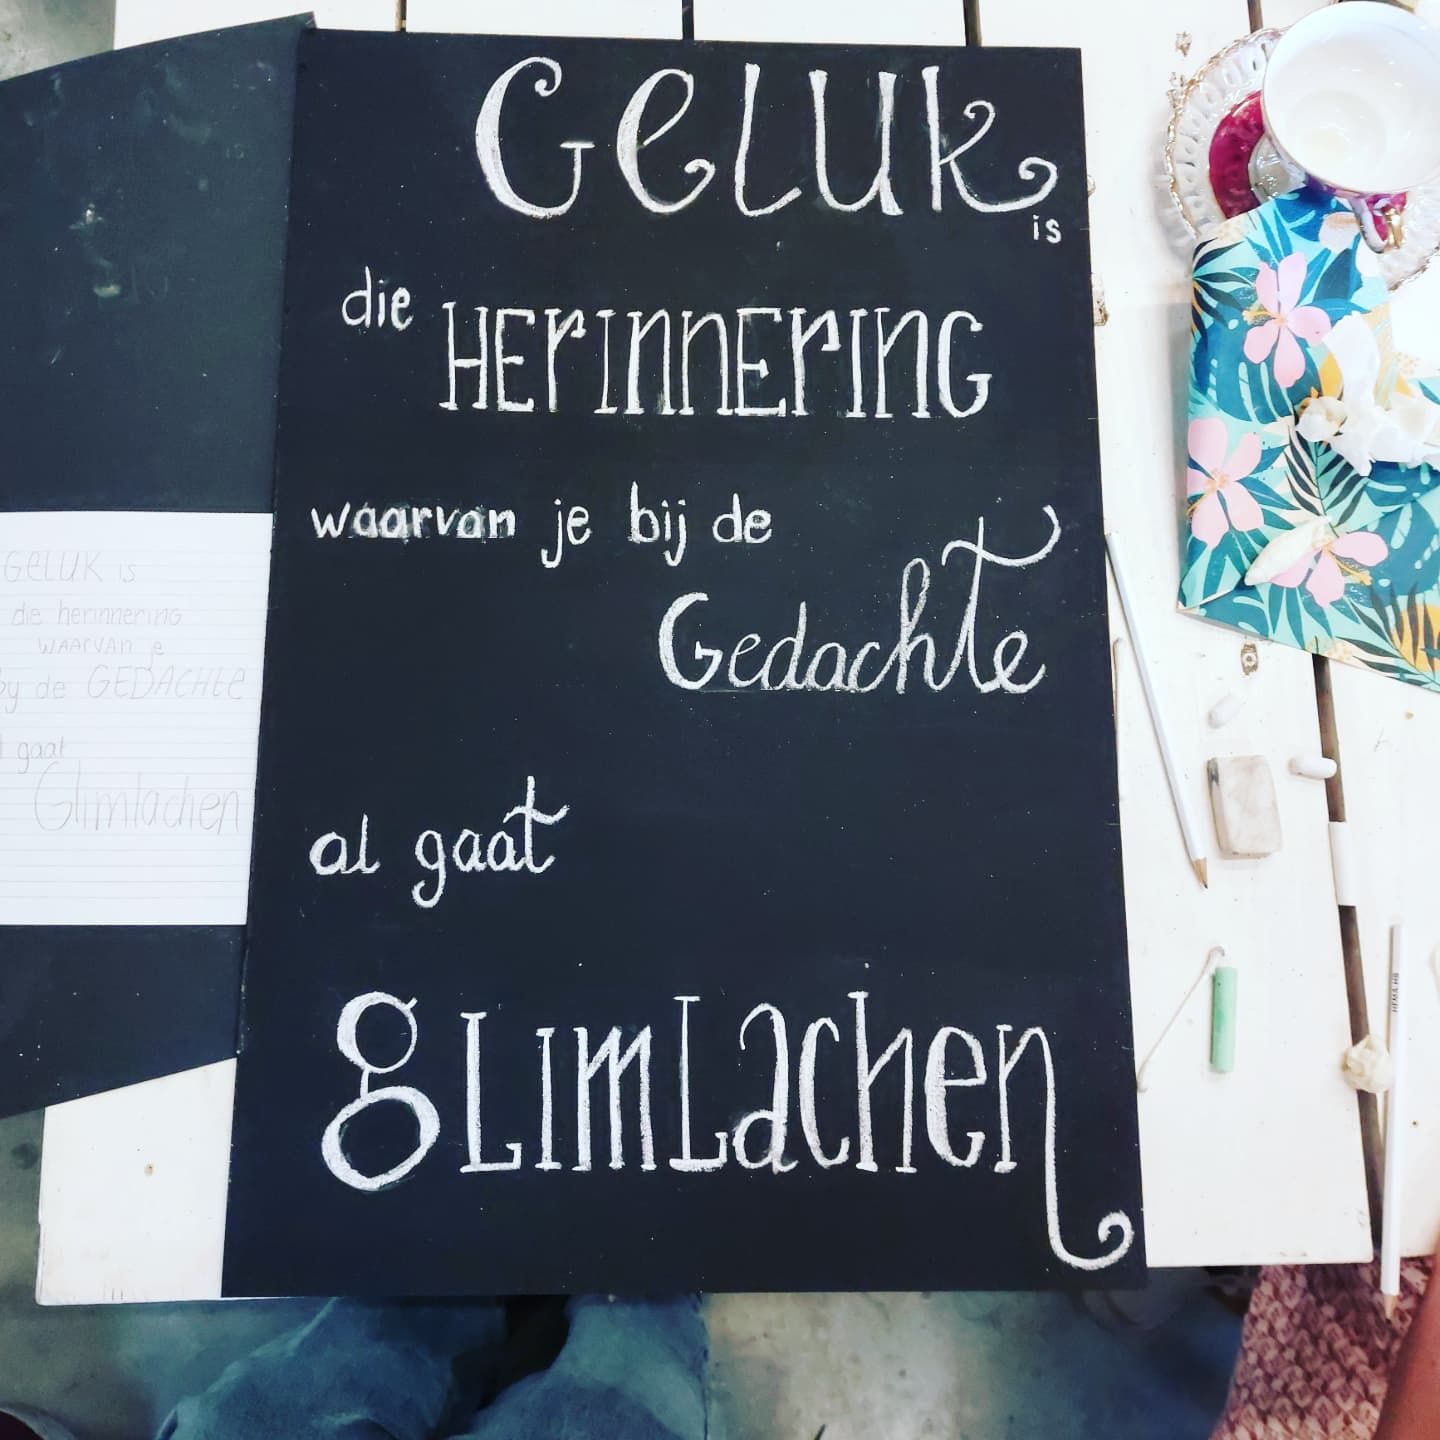 Geluk
is
die HERINNERING
waarvan je bij de
Gedachte
al gaat
gLimLachen
GELUK is
die herinnering
WAARVAN je
by de GEDACHTE
gaat
Glimlachen
HEMA HB